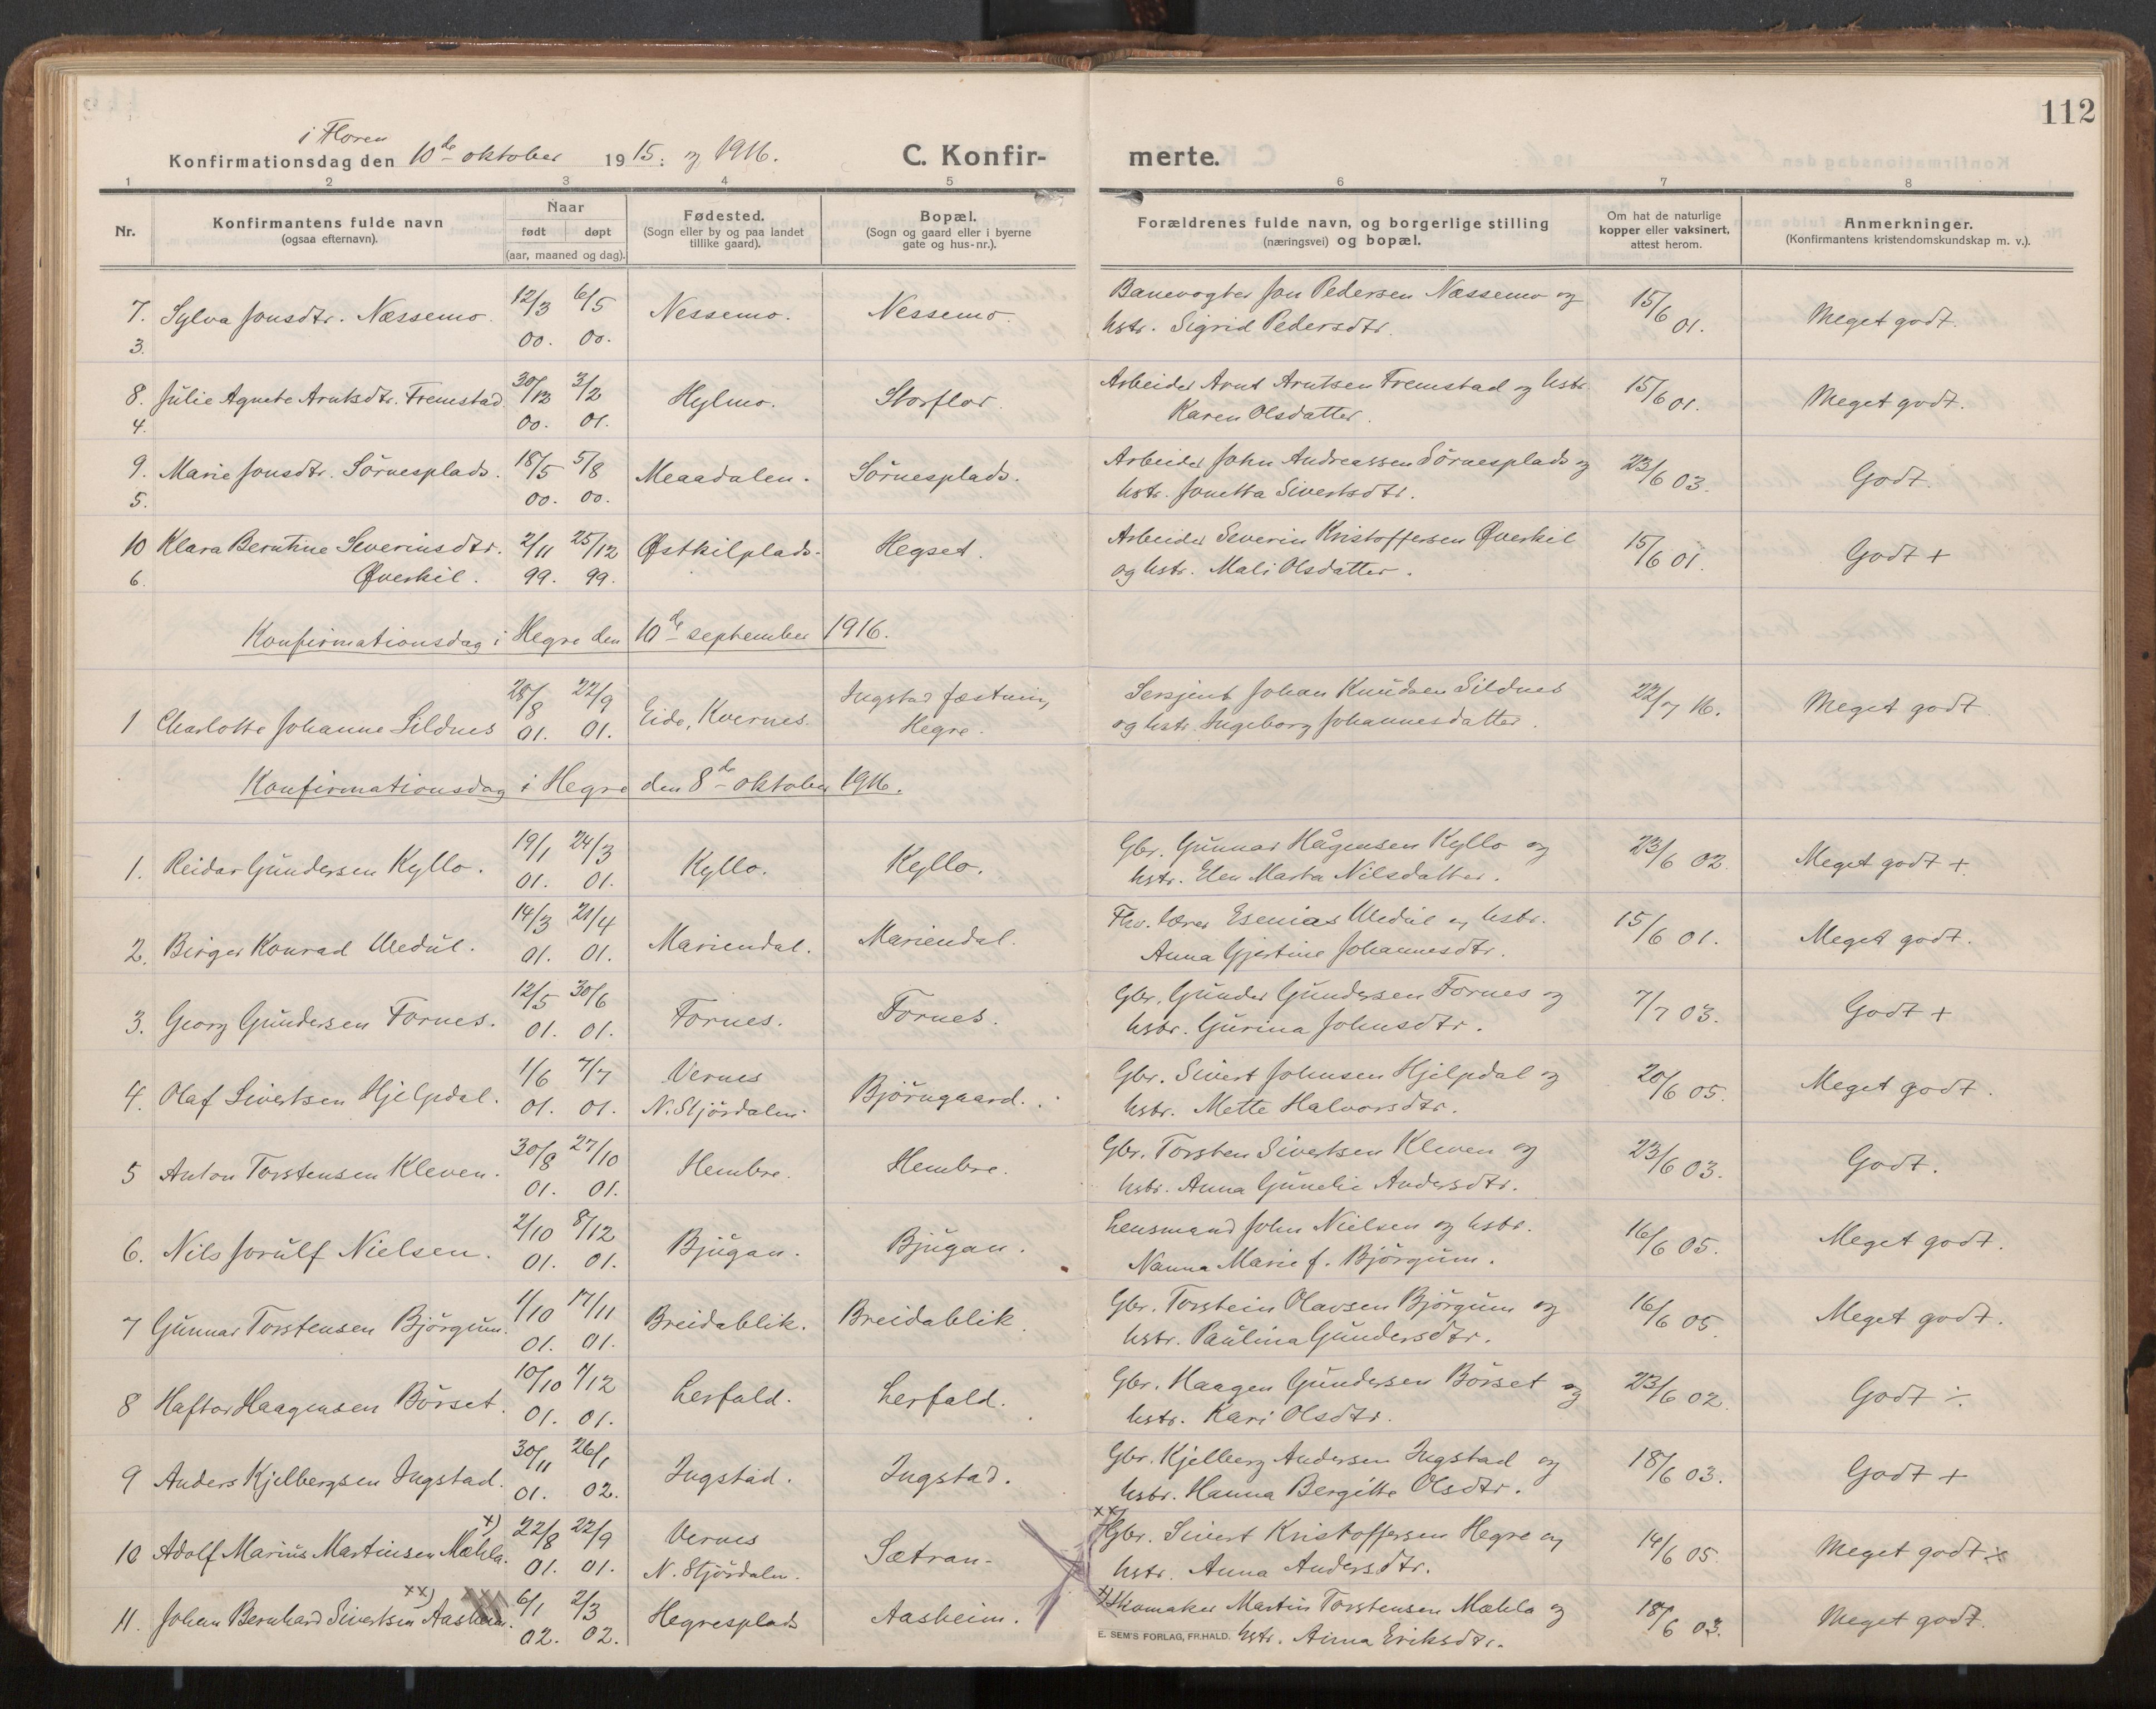 112
i Floren
Konfirmationsdag den 10de oktober 1915: og 1916. C. Konfir- merte.
1 2 3 4 5 6 7 8
Nr. Konfirmantens fulde navn (ogsaa efternavn). Naar født døpt (aar, maaned og dag). Fødested. (Sogn eller by og paa landet tillike gaard). Bopæl. (Sogn og gaard eller i byerne gate og hus-nr.). Forældrenes fulde navn, og borgerlige stilling (næringsvei) og bopæl. Om hat de naturlige kopper eller vaksinert, attest herom. Anmerkninger. (Konfirmantens kristendomskundskap m. v.).
7. Sylva Jonsdtr. Næssemo. 12/3 6/5 Nessemo. Nessemo. Banevogter Jon Pedersen Næssemo og 15/6 01. Meget godt.
3. 00. 00. hstr. Sigrid Pedersdtr.
8. Julie Agnete Arntsdtr. Fremstad 30/12 3/2 Hylmo. Storflor. Arbeider Arnt Arntsen Fremstad og hstr. 15/6 01. Meget godt.
4. 00. 01. Karen Olsdatter.
9. Marie Jonsdtr. Sörnesplads. 18/5 5/8 Meaadalen. Sörnesplads. Arbeider John Andreassen Sörnesplads og 23/6 03. Godt.
5. 00. 00. hstr. Jonetta Sivertsdtr.
10 Klara Berntine Severinsdtr. 2/11 25/12 Østkilplads. Hegset. Arbeider Severin Kristoffersen Øverkil 15/6 01. Godt +
6. Øverkil. 99. 99. og hstr. Mali Olsdatter.
Konfirmationsdag i Hegre den 10de september 1916.
1 Charlotte Johanne Sildnes 28/8 01. 22/9 01. Eide, Kvernes. Ingstad fæstning, Hegre. Sersjent Johan Knudsen Sildnes 22/7 16. Meget godt
og hstr. Ingeborg Johannesdatter.
Konfirmationsdag i Hegre den 8de oktober 1916.
1. Reidar Gundersen Kyllo. 19/1 24/3 Kyllo. Kyllo. Gbr. Gunnar Hågensen Kyllo og 23/6 02. Meget godt +.
01. 01. hstr. Elen Marta Nilsdatter.
2. Birger Konrad Uledul. 14/3 21/4 Mariendal. Mariendal. Fhv. lærer Esenias Uledul og hstr. 15/6 01. Meget godt.
01. 01. Anna Gjertine Johannesdtr.
3. Georg Gundersen Fornes. 12/5 30/6 Fornes. Fornes. Gbr. Gunder Gundersen Fornes og 7/7 03. Godt +
01. 01. hstr. Gurina Johnsdtr.
4. Olaf Sivertsen Hjelpdal. 1/6 7/7 Vernes Björngaard. Gbr. Sivert Johnsen Hjelpdal og 20/6 05. Meget godt.
01. 01. N. Stjördalen. hstr. Mette Halvorsdtr.
5 Anton Torstensen Kleven. 30/8 27/10 Hembre. Hembre. Gbr. Torsten Sivertsen Kleven og 23/6 03. Godt.
01. 01. hstr. Anna Gunelie Andersdtr.
6. Nils Jorulf Nielsen. 2/10 8/12 Bjugan. Bjugan. Lensmand John Nielsen og hstr. 16/6 05. Meget godt.
01. 01. Nanna Marie f. Björgum.
7 Gunnar Torstensen Björgum. 1/10 17/11 Breidablik. Breidablik. Gbr. Torstein Olavsen Björgum og 16/6 05. Meget godt.
01. 01. hstr. Paulina Gundersdtr.
8 Haftor Haagensen Börset. 10/10 7/12 Lerfald. Lerfald. Gbr. Haagen Gundersen Börset og 23/6 02. Godt ÷
01. 01. hstr. Kari Olsdtr.
9 Anders Kjelbergsen Ingstad. 30/11 26/1 Ingstad. Ingstad. Gbr. Kjelberg Andersen Ingstad og 18/6 03. Godt +
01. 02. hstr. Hanna Bergitte Olsdtr.
10 Adolf Marius Martinsen Mæhla. x) 22/8 22/9 Vernes Sætran. xx) Gbr. Sivert Kristoffersen Hegre og 14/6 05. Meget godt
01. 01. N. Stjördalen. hstr. Anna Andersdtr.
11. Johan Bernhard Sivertsen Aasheim. xx) 6/1 2/3 Hegresplads Aasheim. x) Skomaker Martin Torstensen Mæhla og 18/6 03. Meget godt.
02. 02. hstr. Anna Eriksdtr.
E. SEM'S FORLAG, FR.HALD.